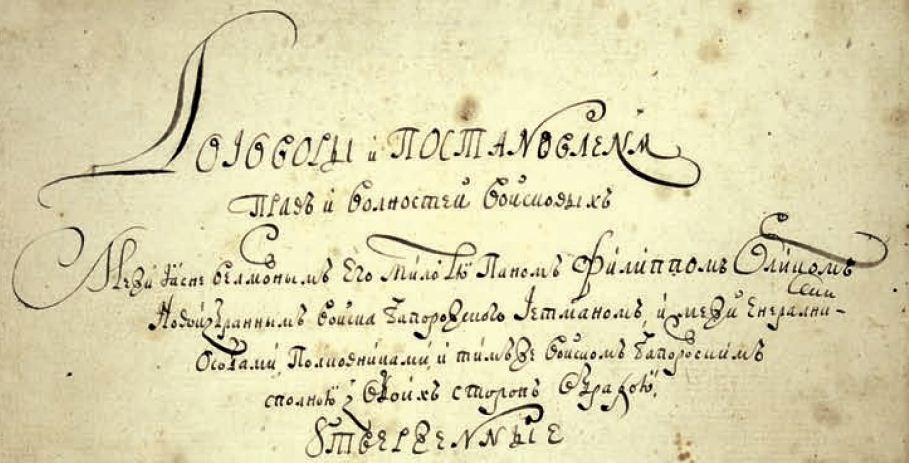 Договоры и Постановленѧ
Правъ и волностей войсковыхъ
Межи Ясне велможнымъ Его милостю Паномъ Филиппомъ Орликомъ
Новоизбраннымъ войска Запорожского Гетманомъ, и межи Енералними
Особами, Полковниками, и тимъ же войскомъ Запорозскимъ
сполною з обоихъ сторонъ обрадою,
Утверженные